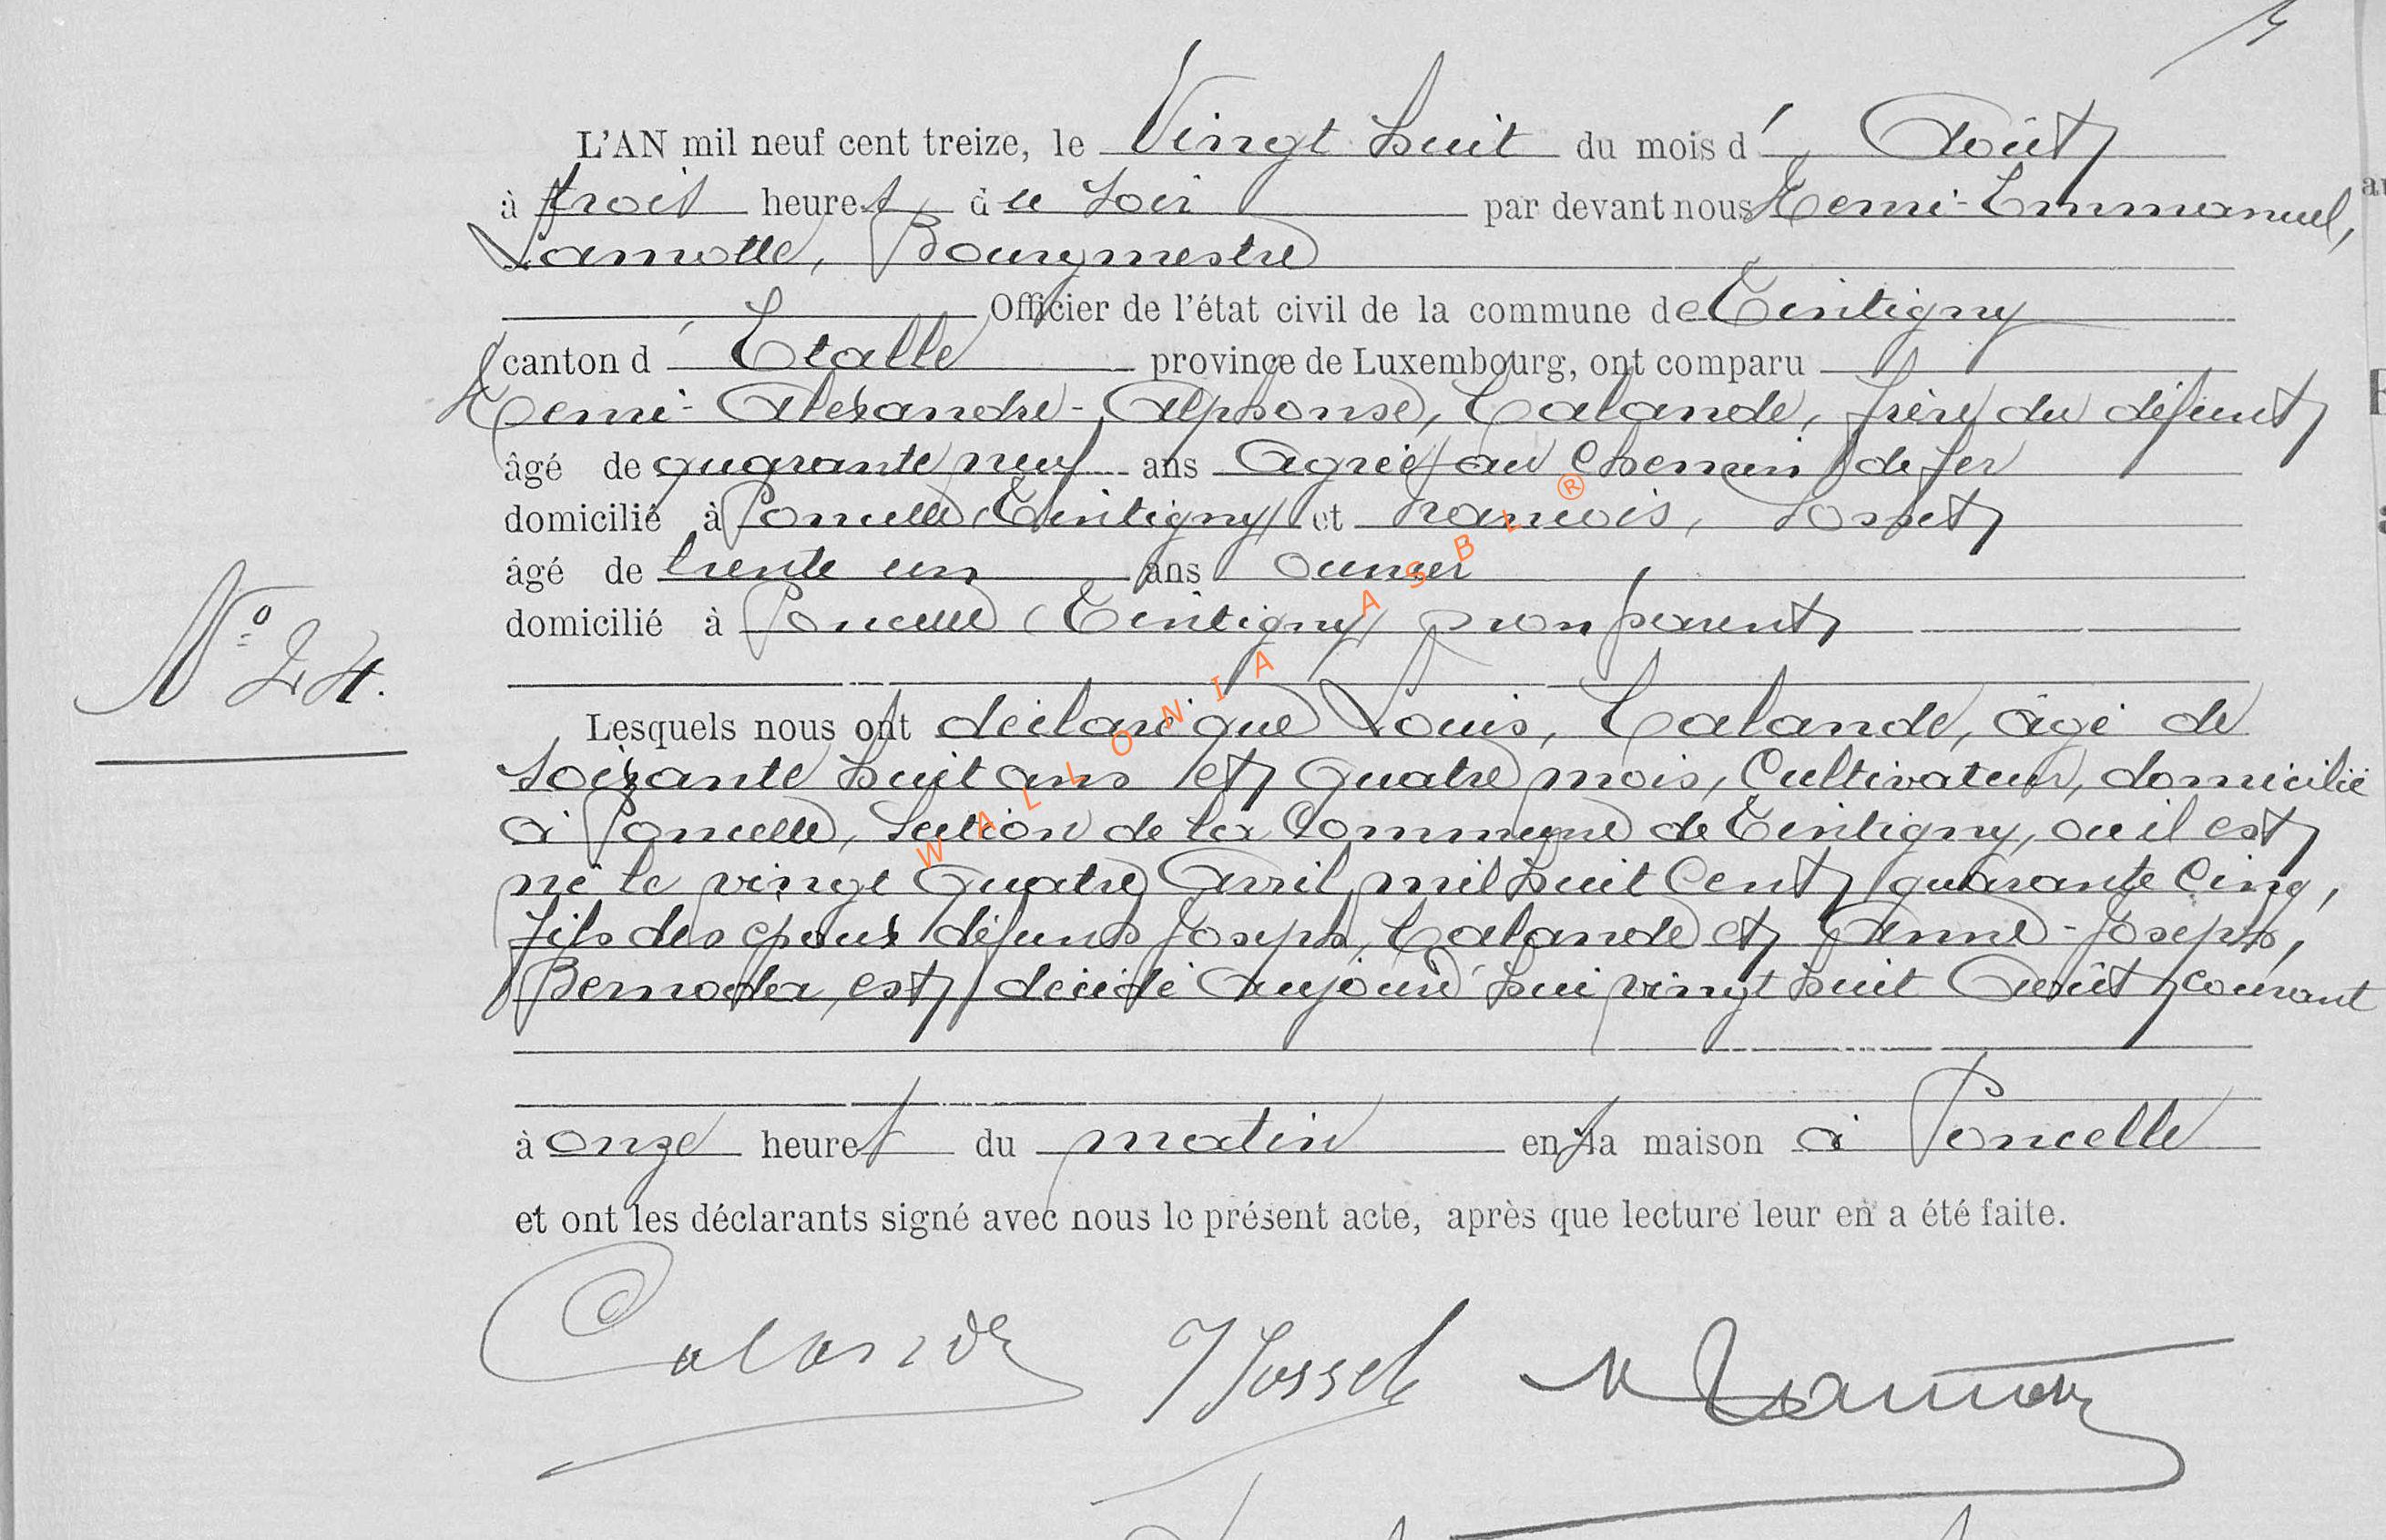 L'AN mil neuf cent treize, le Vingt huit du mois d' Août
à trois heures du soir par devant nous Remi-Emmanuel,
Lamotte, Bourgmestre
Officier de l'état civil de la commune de Tintigny
canton d' Etalle province de Luxembourg, ont comparu
Remi-Alexandre-Alphonse, Calande, frère du défunt
âgé de quarante neuf ans Agréé au chemin de fer
domicilié à Poncelle (Tintigny) et François, Josset
âgé de trente un ans ouvrier
domicilié à Poncelle (Tintigny) non parent
N° 24.
Lesquels nous ont déclaré que Louis, Calande, âgé de
soixante huit ans et quatre mois, Cultivateur, domicilié
à Poncelle, Section de la Commune de Tintigny, où il est
né le vingt quatre Avril mil huit Cent quarante Cinq,
fils des époux défunts Joseph, Calande et Anne-Joseph,
est décédé Aujourd'hui vingt huit Août courant
à onze heures du matin en sa maison à Poncelle
et ont les déclarants signé avec nous le présent acte, après que lecture leur en a été faite.
Calande Josset
WALLONIA ASBL ®